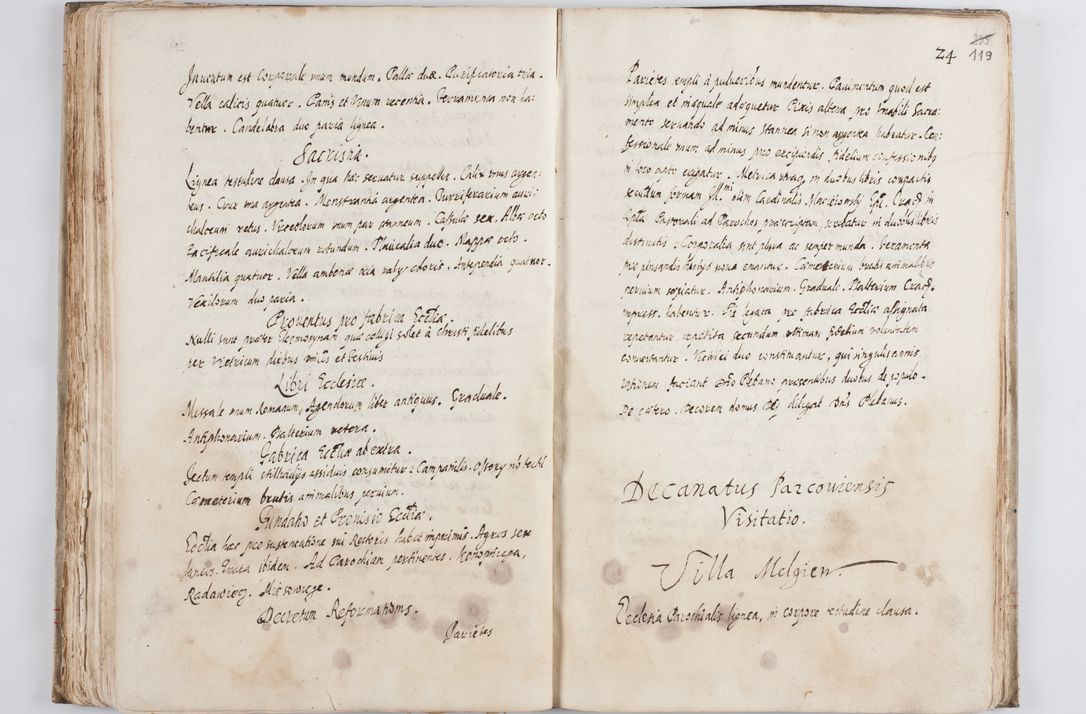 Inventum est Corporale unum mundum. Pallæ duæ. Purificatoria tria.
Vella calicis quatuor. Panis et Vinum recentia. Ferramenta non ha:
bentur. Candelabra duo paria lignea.
Sacristia.
Lignea testudine clausa. In qua hæc servatur suppellex. Calix unus argen:
teus. Crux una argentea. Monstrantia argentea. Turriferarium auri:
chalceum vetus. Urceolorum unum par stanneum. Casulæ sex. Albæ octo
Pacificale aurichalceum rotundum. Pluvialia duo. Mappæ octo.
Mantilia quatuor. Vella ambonæ tria varij coloris. Antipendia quatuor.
Vexillorum duo paria.
Proventus pro fabrica Eccliæ.
Nulli sunt præter Elemosynam quæ colligi solet à Christi fidelibus
per Vitricum diebus festivis
Libri Ecclesiæ.
Missale unum Romanum, Agendorum liber antiquus. Graduale.
Antiphonarium. Psalterium vetera.
Fabrica Eccliæ ab extra.
Tectum templi stillicidijs assiduis consumitur. Campanilis. Ossorij nō tecti
Cæmeterium brutis animalibus pervium.
Fundatio et Provisio Eccliæ.
Ecclia hæc pro sustentatione sui Rectoris habet imprimis. Agros sex
laneos. Prata ibidem. Ad Parochiam pertinentes.
Decretum Reformationis.
Parietes
24
119
Parietes templi à pulveribus mundentur. Pavimentum quod est
simplex et inæquale adæquetur. Pixis altera pro Venerabili Sacra:
mento servando ad minus stannea si non argentea habeatur. Con:
fessionale unum ad minus pro excipiendis fidelium confessionibq
in loco apto erigatur. Metrica utraq in duobus libris compactis
secundum formam Ill.mi olim Cardinalis Macieiowski Epi. Crac. in
Epla Pastorali ad Parochos præscriptam, scribatur in duobus libris
distinctis. Corporalia sint plura ac semper munda. Feramenta
pro pinsendis hostijs nova emantur. Cæmeterium brutis animalibus
pervium sepiatur. Antiphonarium. Graduale. Psalterium Crac.
impress. habentur. Pie legata pro fabrica Eccliæ assignata
repetantur repetita secundum ultimam fidelium voluntatem
convertantur. Vitrici duo constituantur, qui singulis annis
rationem faciant Dno Plebano præsentibus duobus de populo.
De cætero. Decorem domus Dei diligat Dnūs Plebanus.
Decanatus Parcoviensis
Visitatio.
Villa Melgiew.
Ecclesia Parochialis lignea, in corpore testudine clausa.